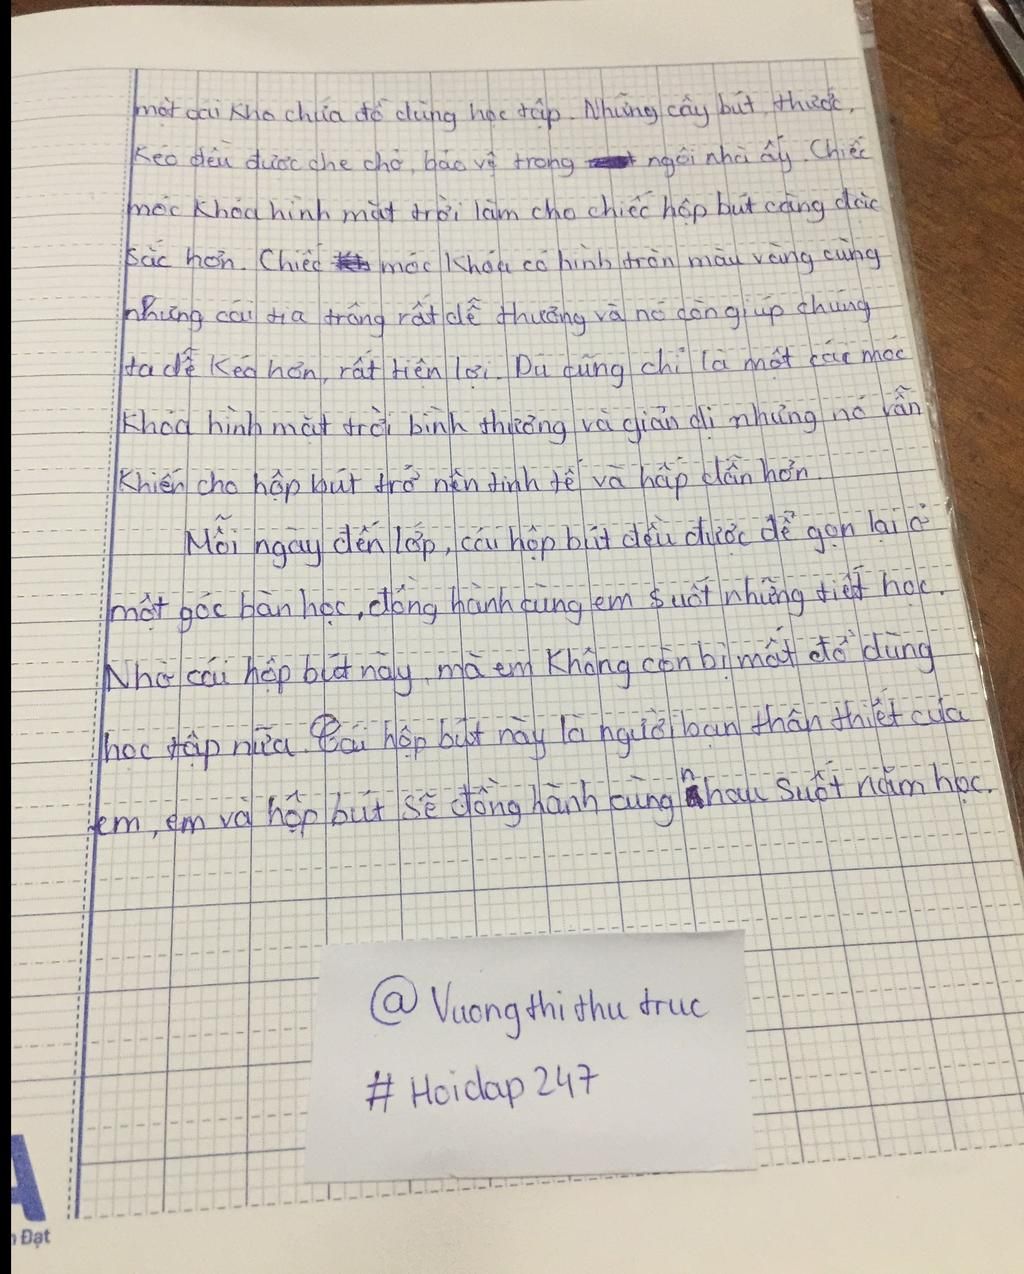 một cái kho chứa đồ dùng học tập. Những cây bút, thước,
kéo đều được che chở, bảo vệ trong ngôi nhà ấy. Chiếc
móc khóa hình mặt trời làm cho chiếc hộp bút càng đặc
sắc hơn. Chiếc móc khóa có hình tròn màu vàng cùng
những cái tia trông rất dễ thương và nó còn giúp chúng
ta dễ kéo hơn, rất tiện lợi. Dù cũng chỉ là một các móc
khóa hình mặt trời bình thường và giản dị nhưng nó vẫn
khiến cho hộp bút trở nên tinh tế và hấp dẫn hơn.
Mỗi ngày đến lớp, cái hộp bút đều được để gọn lại ở
một góc bàn học, đồng hành cùng em suốt những tiết học.
Nhờ cái hộp bút này mà em không còn bị mất đồ dùng
học tập nữa. Cái hộp bút này là người bạn thân thiết của
em, em và hộp bút sẽ đồng hành cùng nhau suốt năm học.
@Vuongthithutruc
#Hoidap247
A
Đạt